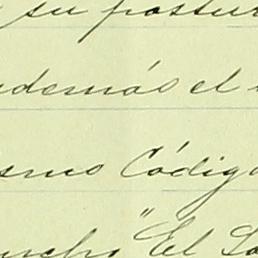 su postur
además el
smo Código
ncho "El Sa